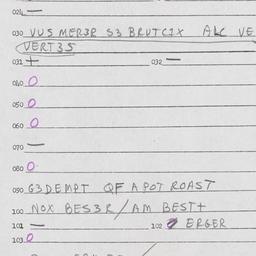 024 —
030 VUS MER3R S3 BRUTCIX ALC VE
VERT3S
031 + 032 —
040 O
050 O
060 O
070 —
080 O
090 G3DEMPT QF A POT ROAST
100 NOX BES3R / AM BEST+
101 — 102 ERGER
103 O